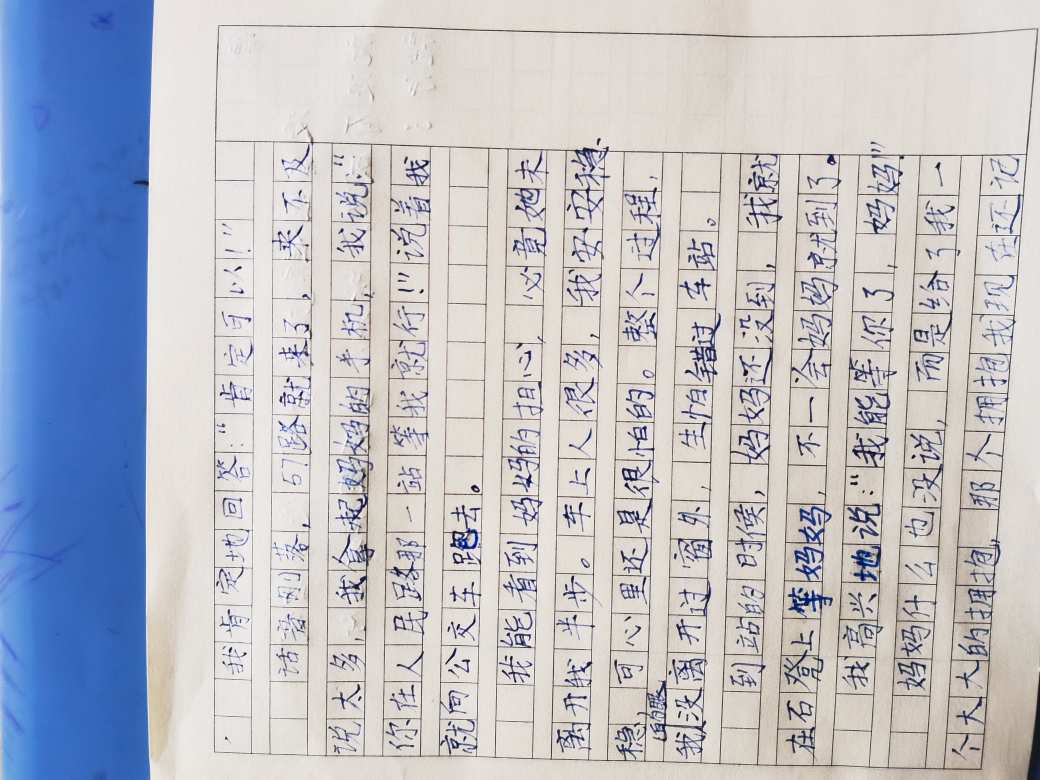 我肯定地回答：“肯定可以！”
话音刚落，57路就来了，来不及
说太多，我拿起妈妈的手机，我说：“
你在人民路那一站等我就行！”说着我
就向公交车跑去。
我能看到妈妈的担心，必竟她未
离开我半步。车上人很多，我安安稳
稳 可心里还是很怕的。整个过程，
的眼
我没离开过窗外，生怕错过车站。
到站的时候，妈妈还没到，我就
在石凳上等妈妈，不一会妈妈就到了。
我高兴地说：“我能等你了，妈妈！”
妈妈什么也没说，而是给了我一
个大大的拥抱，那个拥抱我现在还记